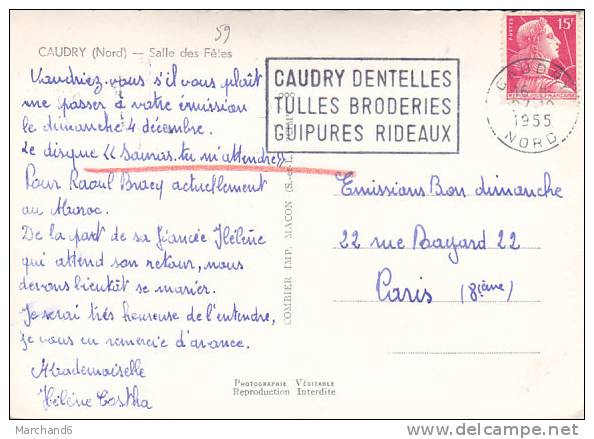 59
CAUDRY (Nord) — Salle des Fêtes
Vaudriez-vous s'il vous plaît
me passer à votre émission
le dimanche 4 décembre.
Le disque "Sauras-tu m'attendre"
Pour Raoul Bracy actuellement
au Maroc.
De la part de sa fiancée Hélène
qui attend son retour, nous
devons bientôt se marier.
Je serai très heureuse de l'entendre,
je vous en remercie d'avance.
Mademoiselle
Hélène Costha
CAUDRY DENTELLES
TULLES BRODERIES
GUIPURES RIDEAUX
POSTES
15F
REPUBLIQUE FRANÇAISE
CAUDRY
1955
NORD
COMBIER IMP. MACON (S.-et-L.)
Emissions Bon dimanche
22 rue Bayard 22
Paris (8ième)
PHOTOGRAPHIE VÉRITABLE
Reproduction Interdite
Marchand6
www.delcampe.net